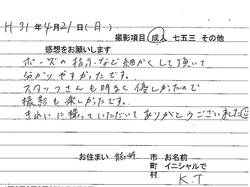 H31年4月21日(日)
撮影項目 成人 七五三 その他
感想をお願いします
ポーズの指示など細かくして頂いて
分かりやすかったです。
スタッフさんも明るく優しかったので
撮影も楽しかったです。
きれいに撮っていただいてありがとうございました
お住まい 市 お名前
町 イニシャルで
村 K.T